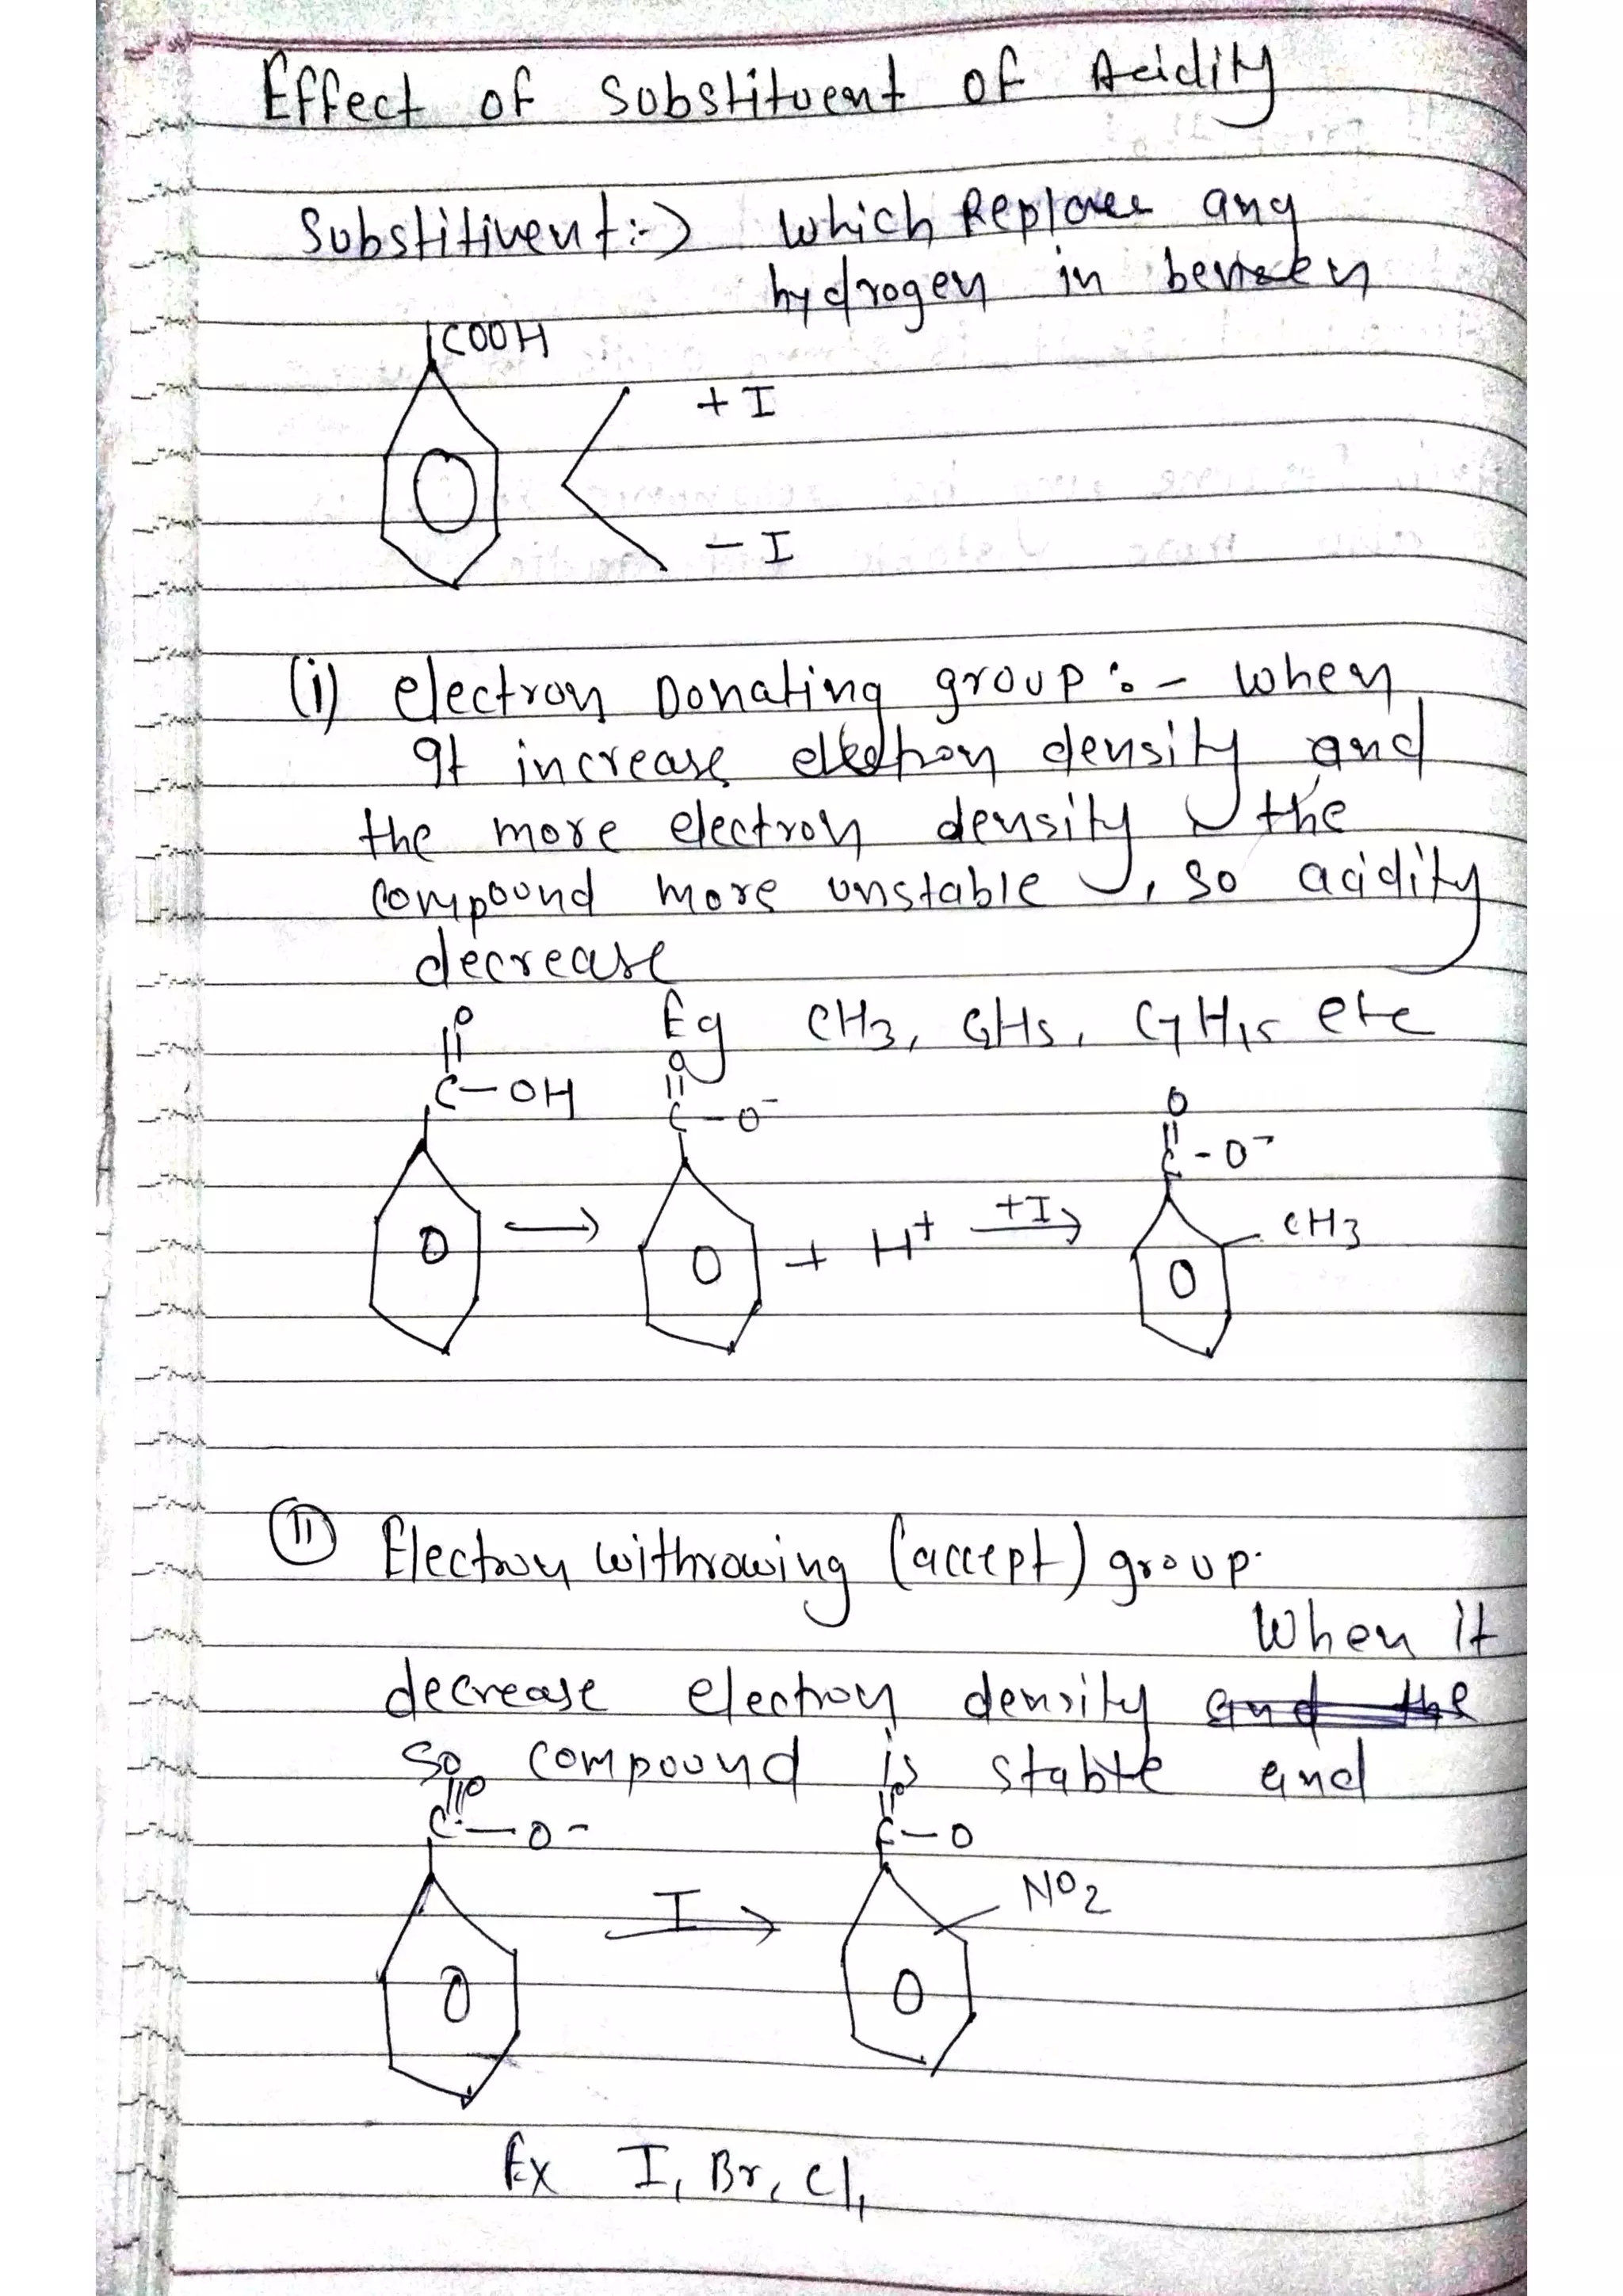 Effect of Substituent of Acidity
Substitivent:-> which Replace any
hydrogen in benzeen
COOH
+ I
- I
(i) electron Donating group :- when
It increase electron density and
the more electron density the
compound more unstable, so acidity
decrease
Eg CH3, C2H5, C7H15 etc
O
C-OH
O
C-O-
O
C-O-
+ H+ +I CH3
(II) Electron withrawing (accept) group.
When it
decrease electron density and the
so compound is stable and
O
C-O-
O
C-O
I
NO2
Ex I, Br, Cl,